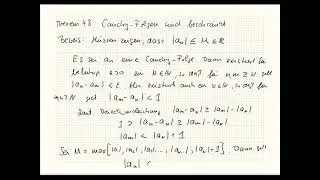 Theorem 4.8 Cauchy-Folgen sind beschränkt
Beweis: Müssen zeigen, dass |aₙ| ≤ M ∈ ℝ
Es sei an eine Cauchy-Folge. Dann existiert für
beliebige ε>0 ein N∈ℕ, so daß für n,m ≥ N gilt
|aₙ-aₘ| < ε. Also existiert auch ein N∈ℕ, so daß für
n,m≥N gilt |aₘ-aₙ| < 1
Laut Dreiecksungleichung |aₘ-aₙ| ≥ |aₘ|-|aₙ|
1 > |aₘ-aₙ| ≥ |aₘ|-|aₙ|
|aₘ| < |aₙ|+1
Sei M = max{|a₁|,|a₂|,|a₃|,...,|aₙ|,|aₙ|+1}. Dann gilt
|aₙ| <